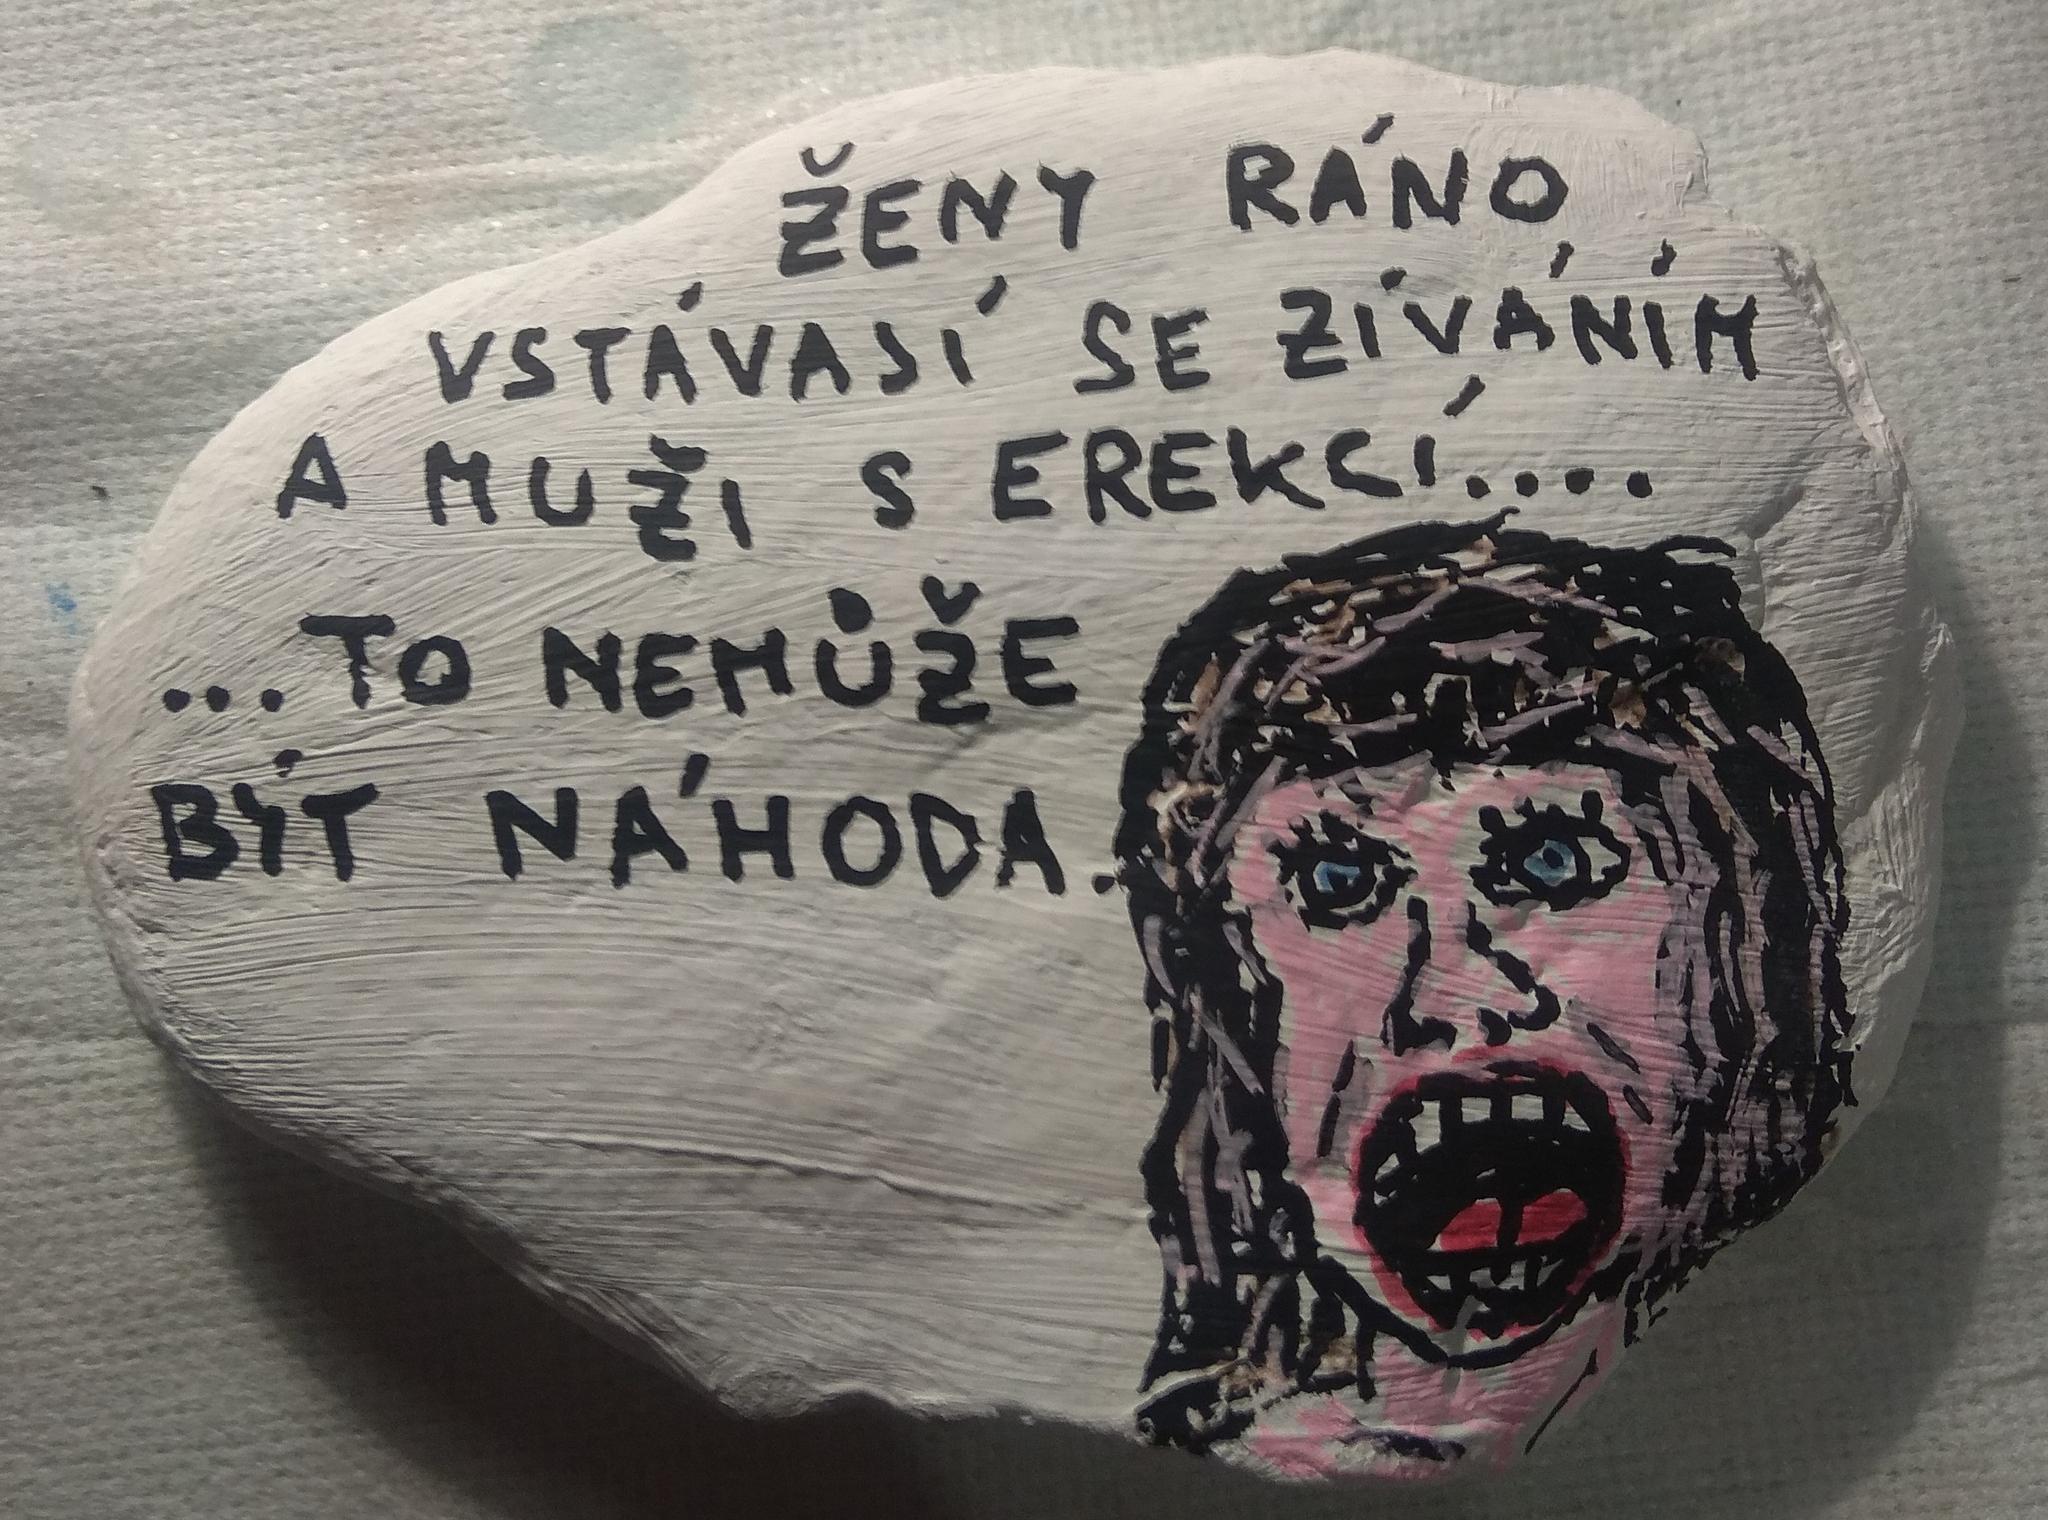 ŽENY RÁNO
VSTÁVASÍ SE ZÍVÁNÍM
A MUŽI S EREKCÍ....
...TO NEMŮŽE
BÝT NÁHODA.